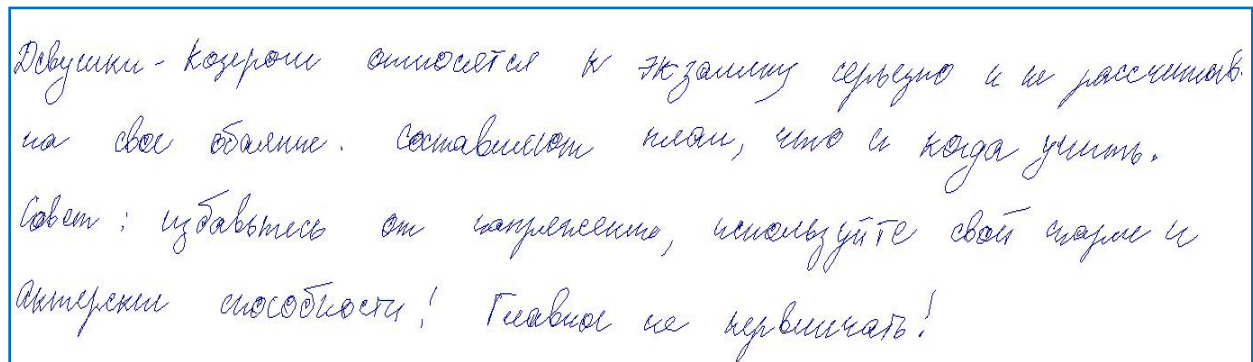 Девушки - Козероги относятся к экзамену серьезно и не рассчитыв.
на свое обаяние. Составляют план, что и когда учить.
Совет: избавьтесь от напряжения, используйте свой шарм и
актерские способности! Главное не нервничать!